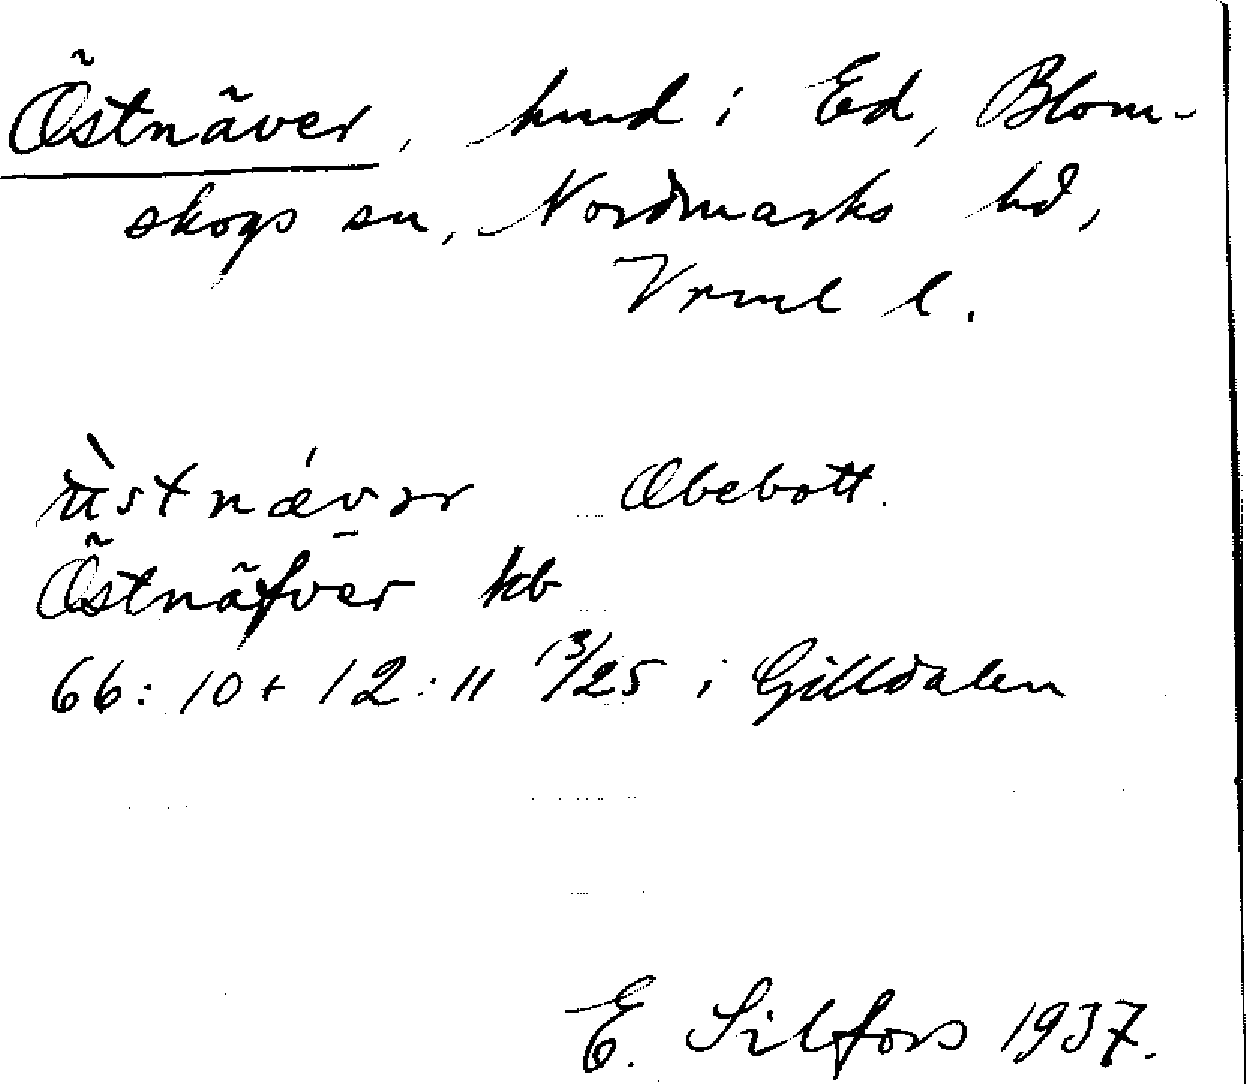 Östnäver, hmd i Ed, Blom-
skogs sn, Nordmarks hd,
Vrml l.
ùstnǽvər Obebott.
Östnäfver kb
66:10 + 12:11 13/25 i Gilldalen
E. Silfors 1937.